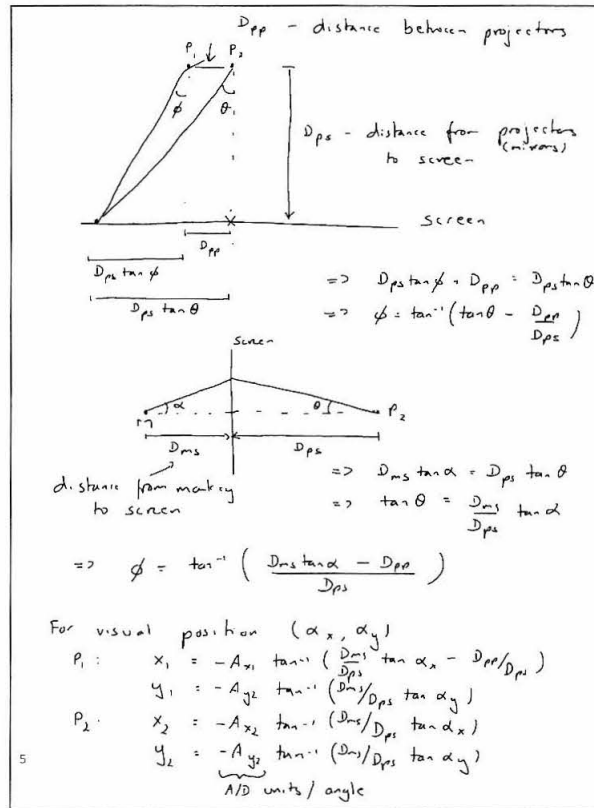 Dpp - distance between projectors
P1 P2
φ θ
Dps - distance from projectors
(mirrors)
to screen
screen
Dpp
Dps tan φ
Dps tan θ
=> Dps tan φ + Dpp = Dps tan θ
=> φ = tan⁻¹(tan θ - Dpp/Dps)
screen
α θ P2
m
Dms Dps
distance from monkey
to screen
=> Dms tan α = Dps tan θ
=> tan θ = Dms/Dps tan α
=> φ = tan⁻¹ ( (Dms tan α - Dpp)/Dps )
For visual position (αx, αy)
P1: x1 = -Ax1 tan⁻¹ (Dms/Dps tan αx - Dpp/Dps)
y1 = -Ay2 tan⁻¹ (Dms/Dps tan αy)
P2: x2 = -Ax2 tan⁻¹ (Dms/Dps tan αx)
y2 = -Ay2 tan⁻¹ (Dms/Dps tan αy)
A/D units/angle
5